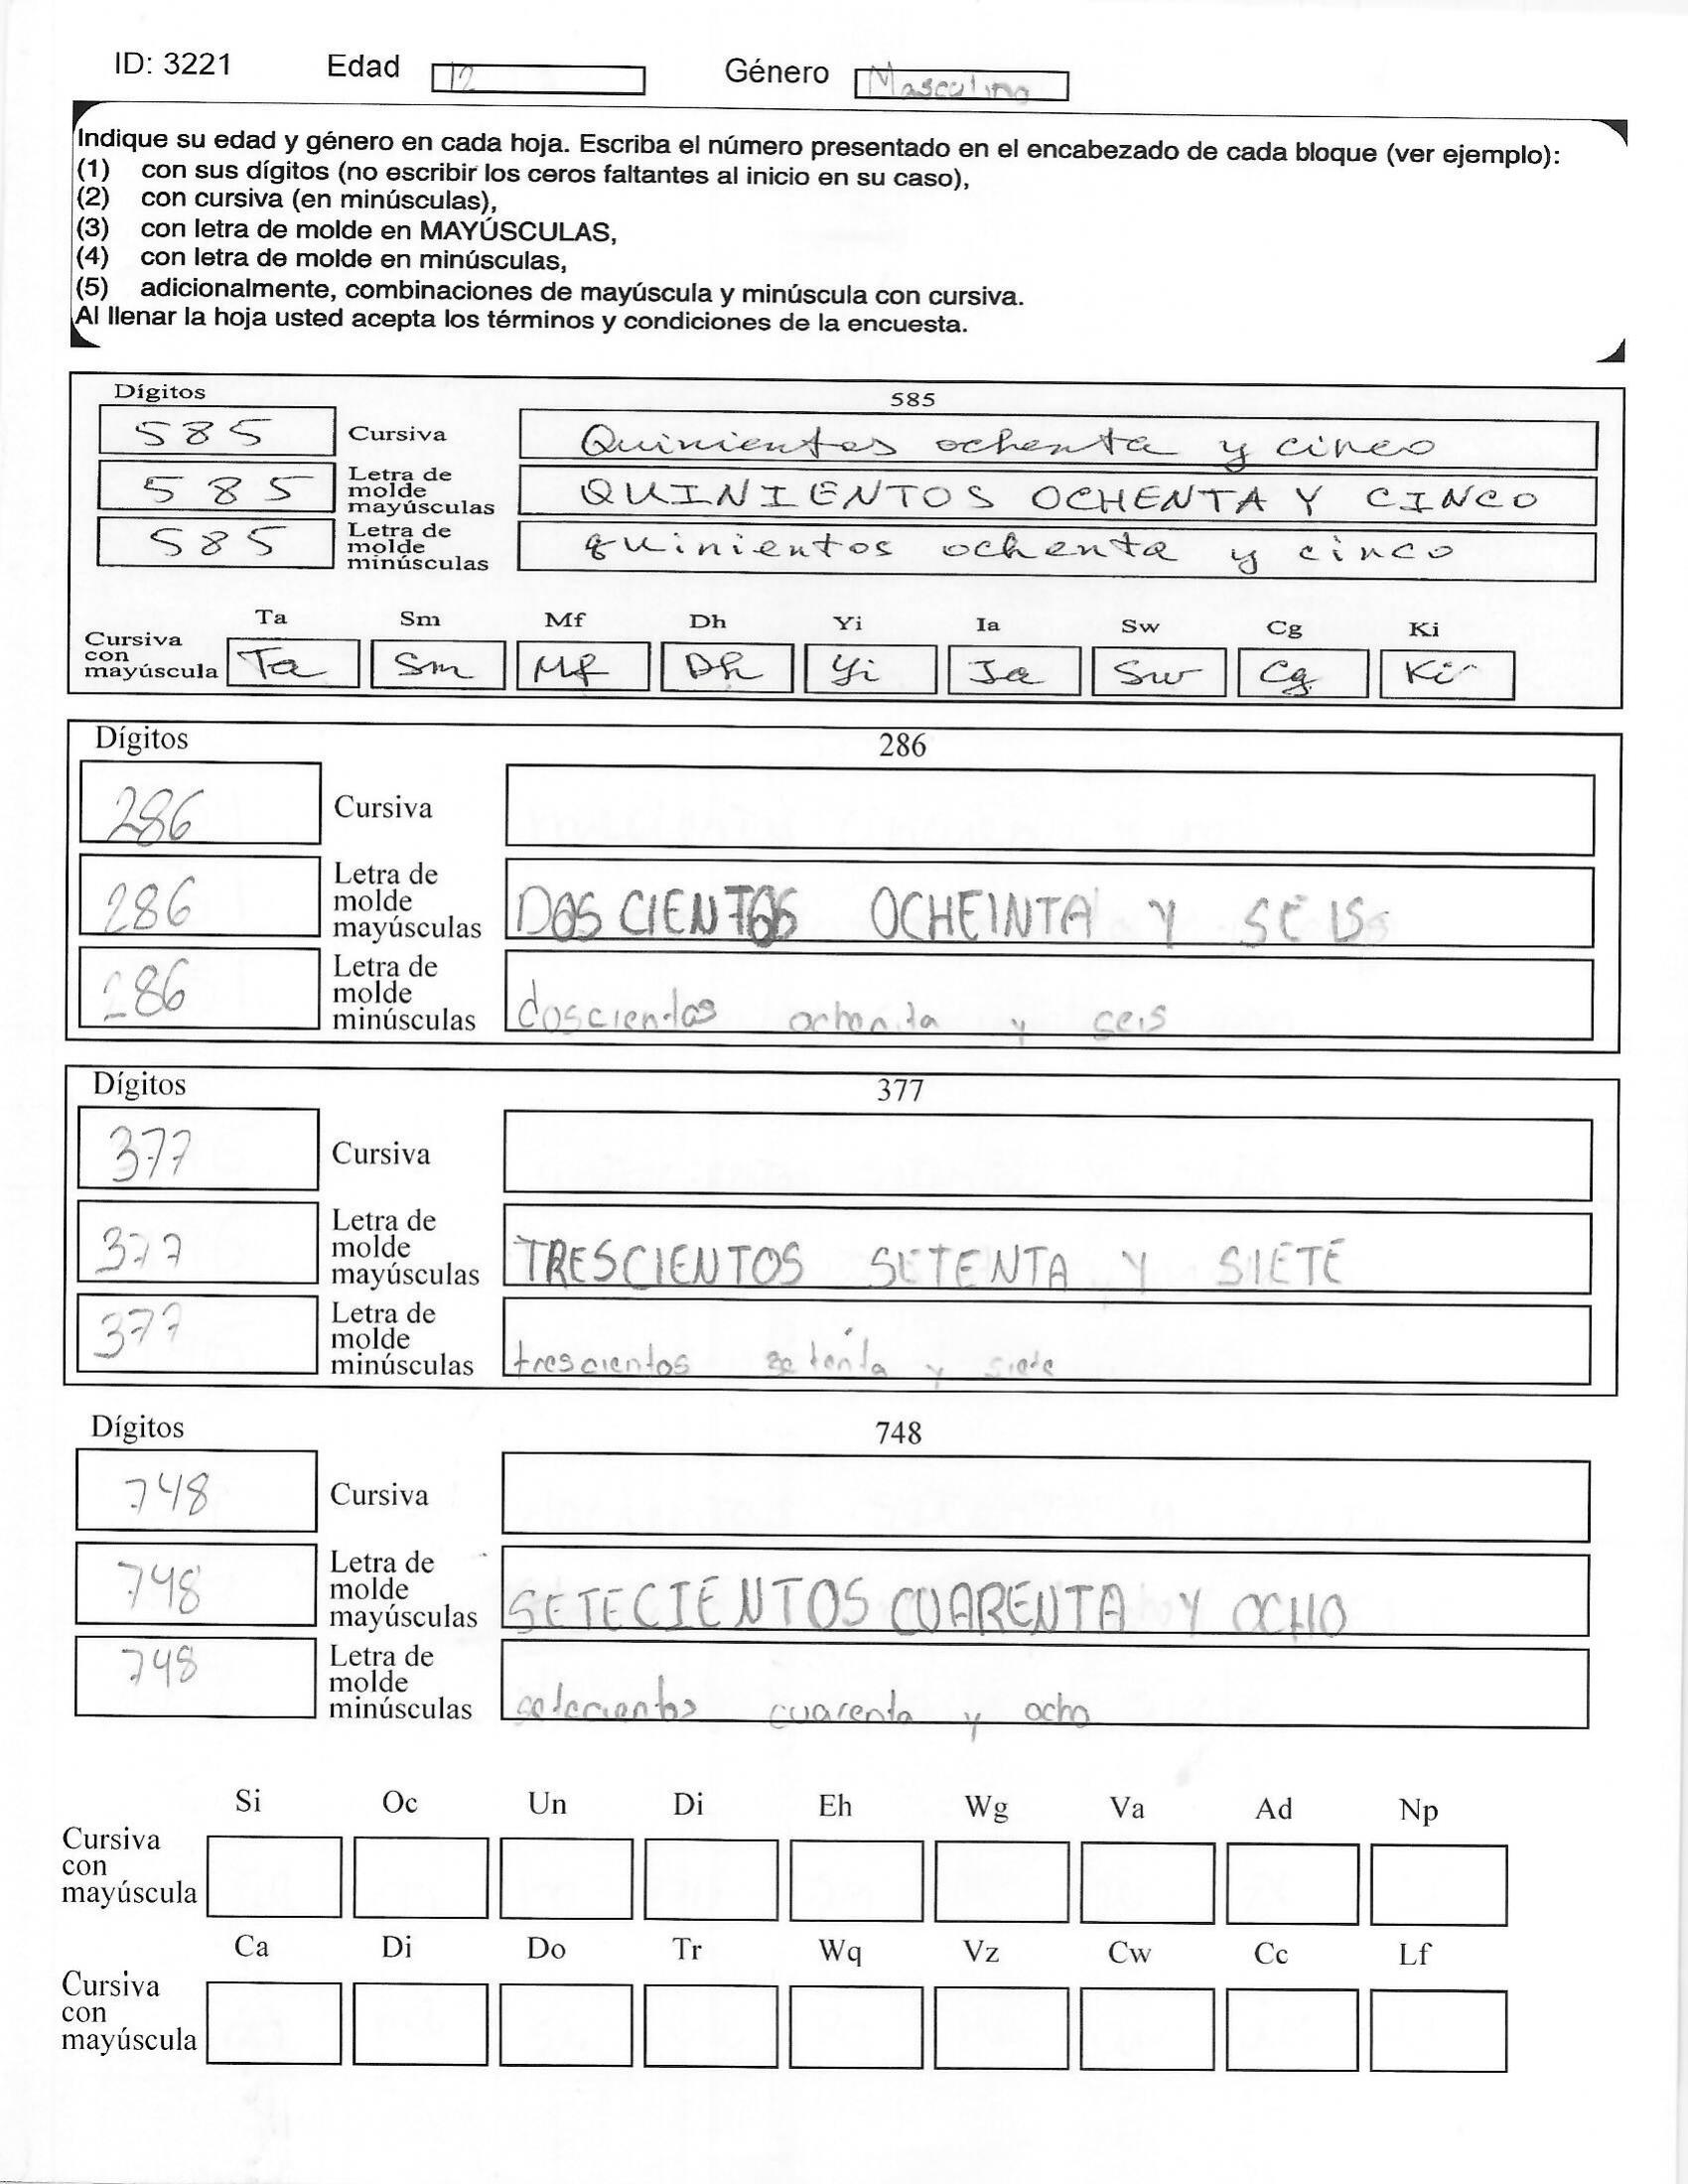 ID: 3221 Edad 12 Género Masculino
Indique su edad y género en cada hoja. Escriba el número presentado en el encabezado de cada bloque (ver ejemplo):
(1) con sus dígitos (no escribir los ceros faltantes al inicio en su caso),
(2) con cursiva (en minúsculas),
(3) con letra de molde en MAYÚSCULAS,
(4) con letra de molde en minúsculas,
(5) adicionalmente, combinaciones de mayúscula y minúscula con cursiva.
Al llenar la hoja usted acepta los términos y condiciones de la encuesta.
Dígitos 585
585 Cursiva Quinientos ochenta y cinco
585 Letra de molde mayúsculas QUINIENTOS OCHENTA Y CINCO
585 Letra de molde minúsculas quinientos ochenta y cinco
Ta Sm Mf Dh Yi Ia Sw Cg Ki
Cursiva con mayúscula Ta Sm Mf Dh Yi Ia Sw Cg Ki
Dígitos 286
286 Cursiva
286 Letra de molde mayúsculas DOSCIENTOS OCHEINTA Y SEIS
286 Letra de molde minúsculas doscientos ochenta y seis
Dígitos 377
377 Cursiva
377 Letra de molde mayúsculas TRESCIENTOS SETENTA Y SIETE
377 Letra de molde minúsculas trescientos setenta y siete
Dígitos 748
748 Cursiva
748 Letra de molde mayúsculas SETECIENTOS CUARENTA Y OCHO
748 Letra de molde minúsculas setecientos cuarenta y ocho
Si Oc Un Di Eh Wg Va Ad Np
Cursiva con mayúscula
Ca Di Do Tr Wq Vz Cw Cc Lf
Cursiva con mayúscula